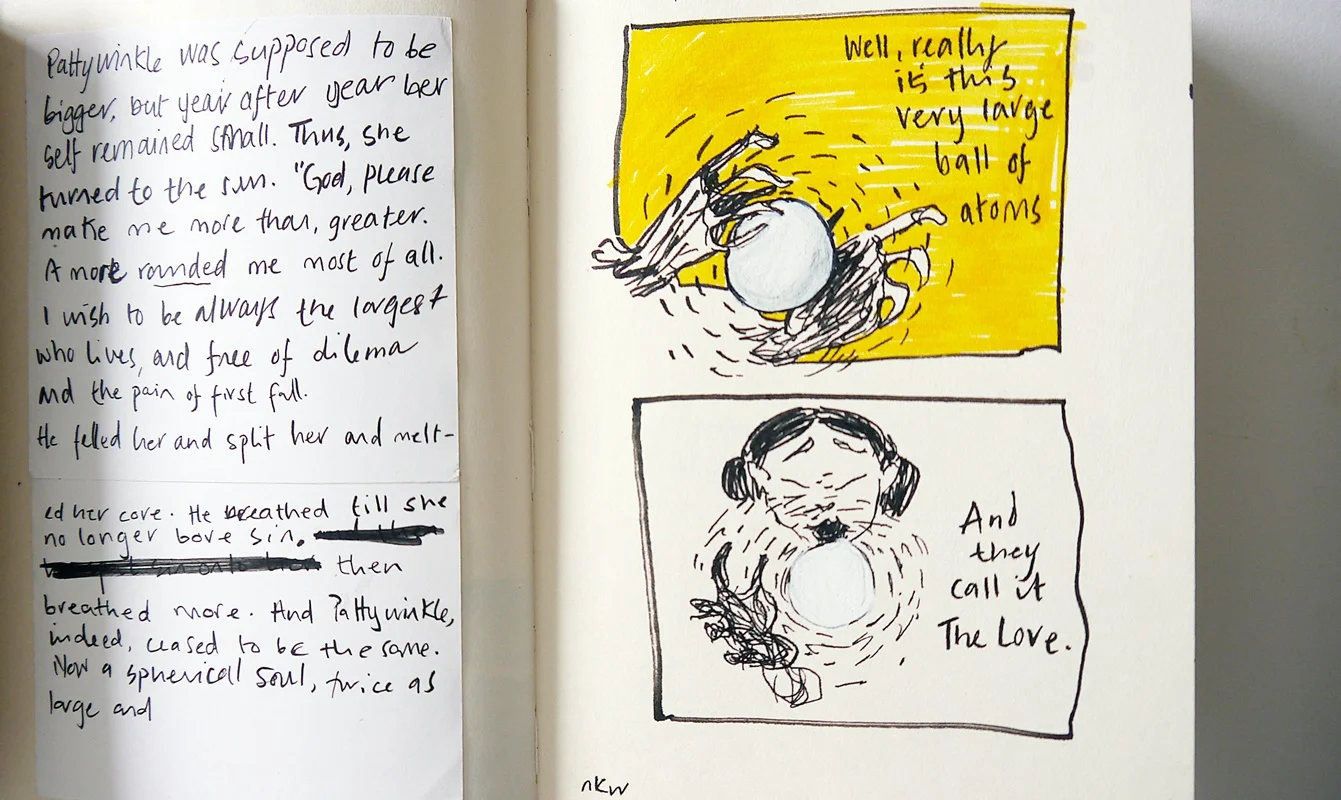 Pattywinkle was supposed to be
bigger, but year after year her
self remained small. Thus, she
turned to the sun. "God, please
make me more than, greater.
A more rounded me most of all.
I wish to be always the largest
who lives, and free of dilema
and the pain of first fall.
He felled her and split her and melt-
ed her core. He breathed till she
no longer bore sin.
then
breathed more. And Pattywinkle,
indeed, ceased to be the same.
Now a spherical soul, twice as
large and
Well, really
it's this
very large
ball of
atoms
And
they
call it
The Love.
nKW